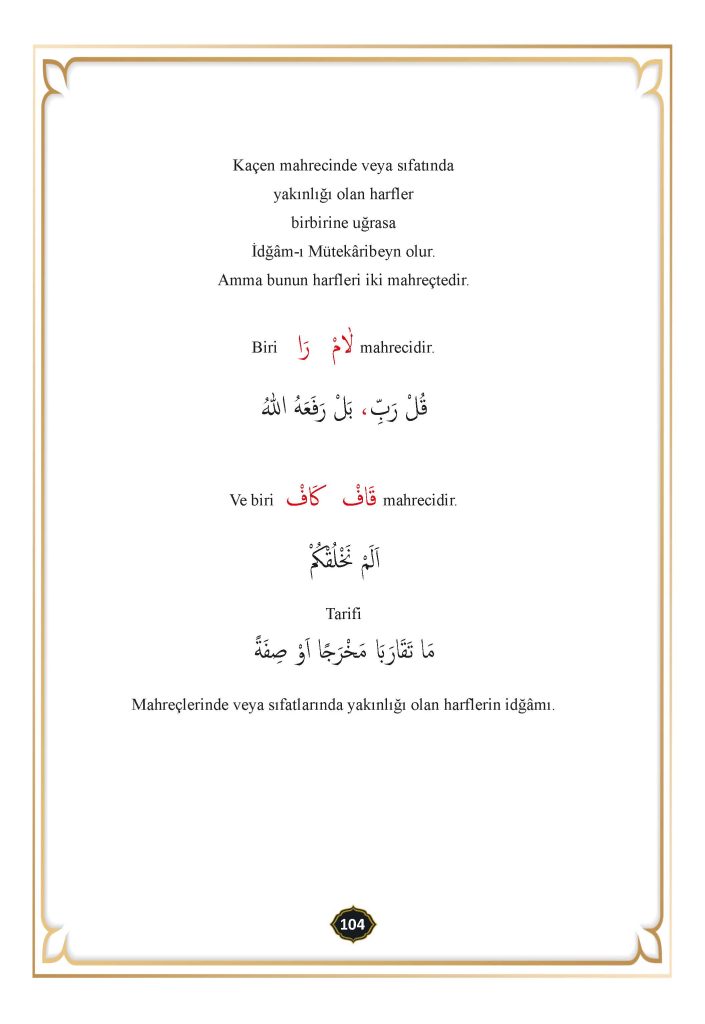 Kaçen mahrecinde veya sıfatında
yakınlığı olan harfler
birbirine uğrasa
İdğâm-ı Mütekâribeyn olur.
Amma bunun harfleri iki mahreçtedir.
Biri لَامْ رَا mahrecidir.
قُلْ رَبِّ، بَلْ رَفَعَهُ اللّٰهُ
Ve biri قَافْ كَافْ mahrecidir.
اَلَمْ نَخْلُقْكُمْ
Tarifi
مَا تَقَارَبَا مَخْرَجًا اَوْ صِفَةً
Mahreçlerinde veya sıfatlarında yakınlığı olan harflerin idğâmı.
104